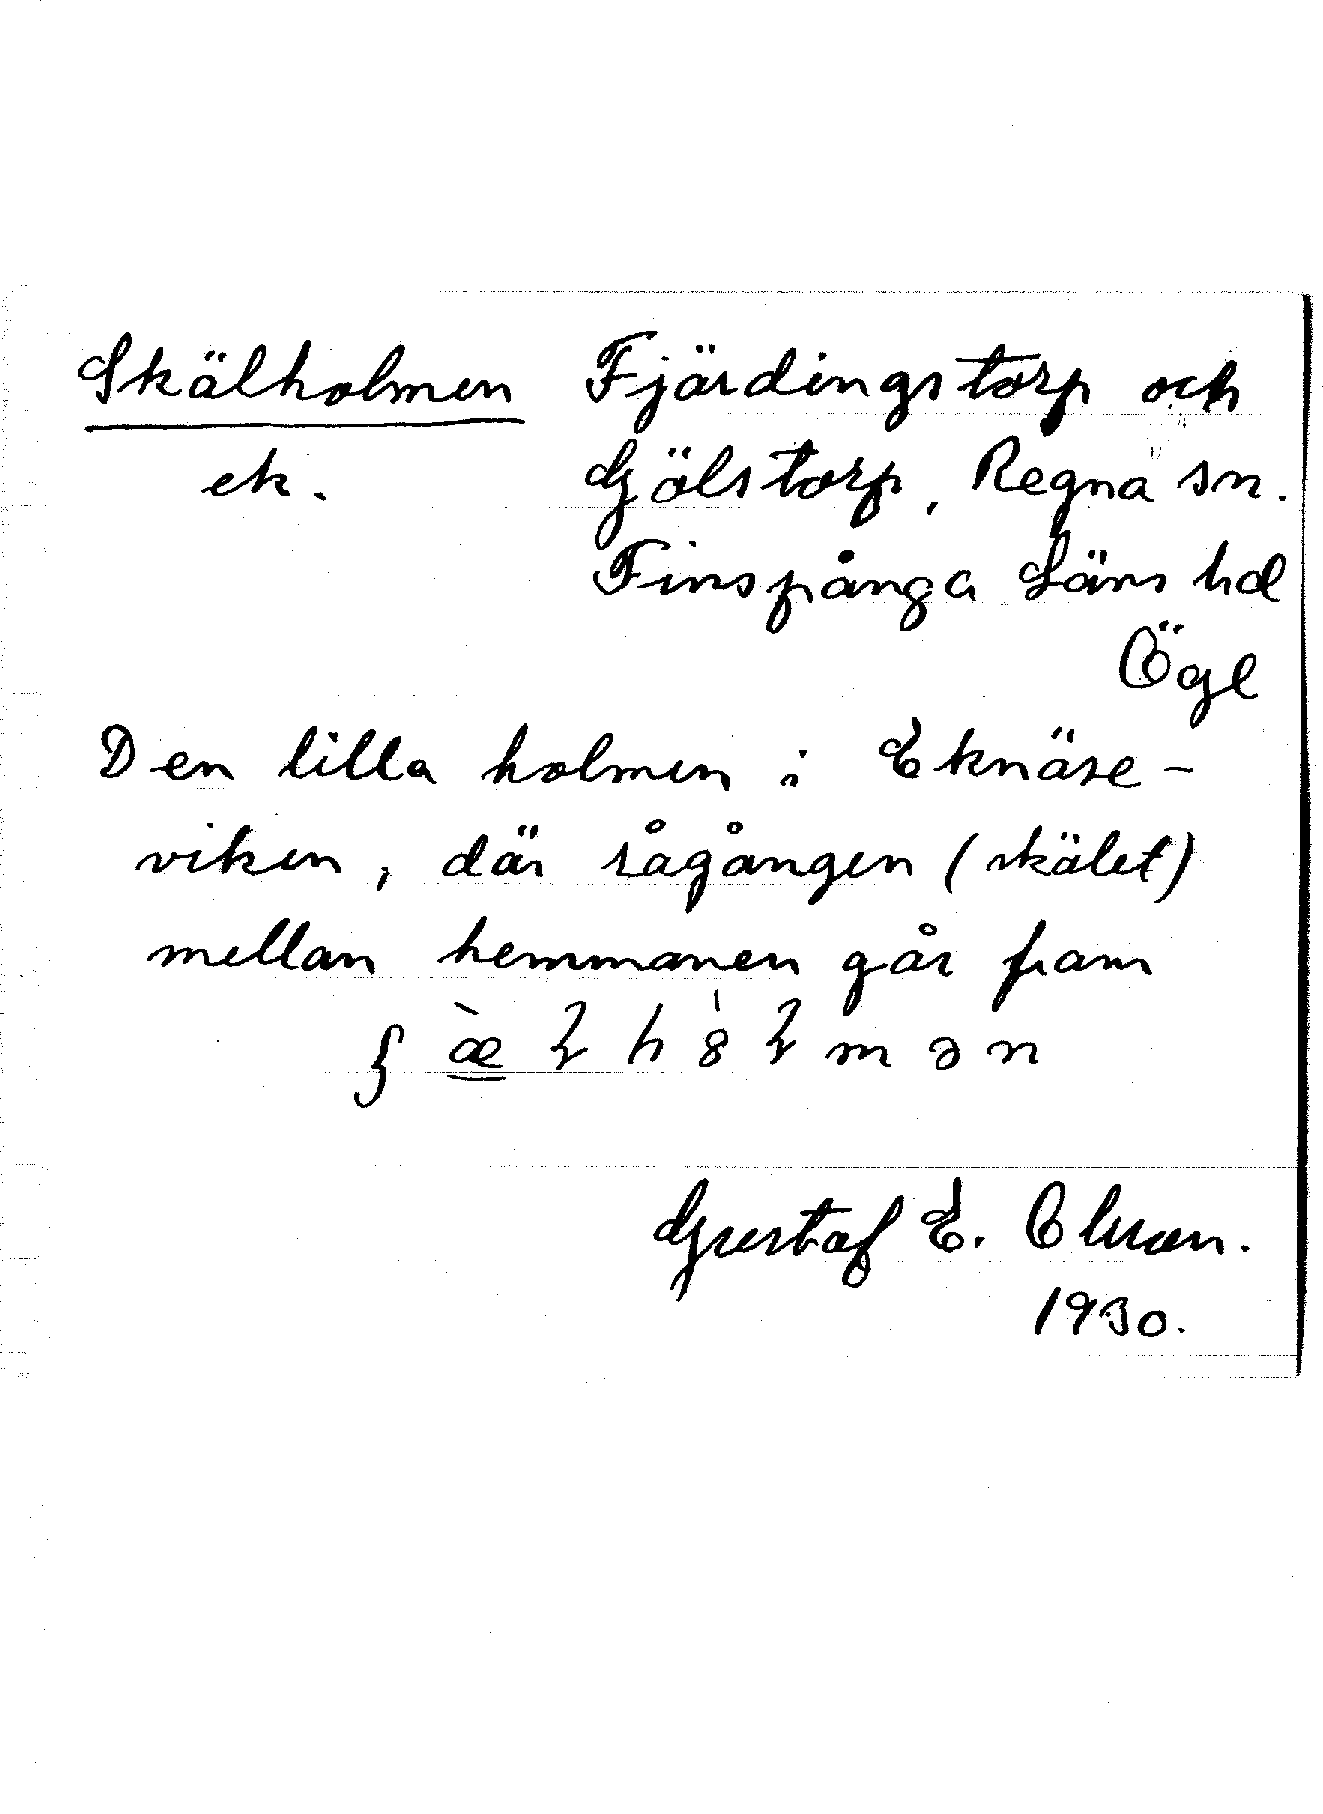 Skälholmen Fjärdingstorp och
ek. Gölstorp, Regna sn.
Finspånga Läns hd
Ögl
Den lilla holmen i Eknäse-
viken, där rågången (skälet)
mellan hemmanen går fram
Gustaf E. Olsson.
1930.